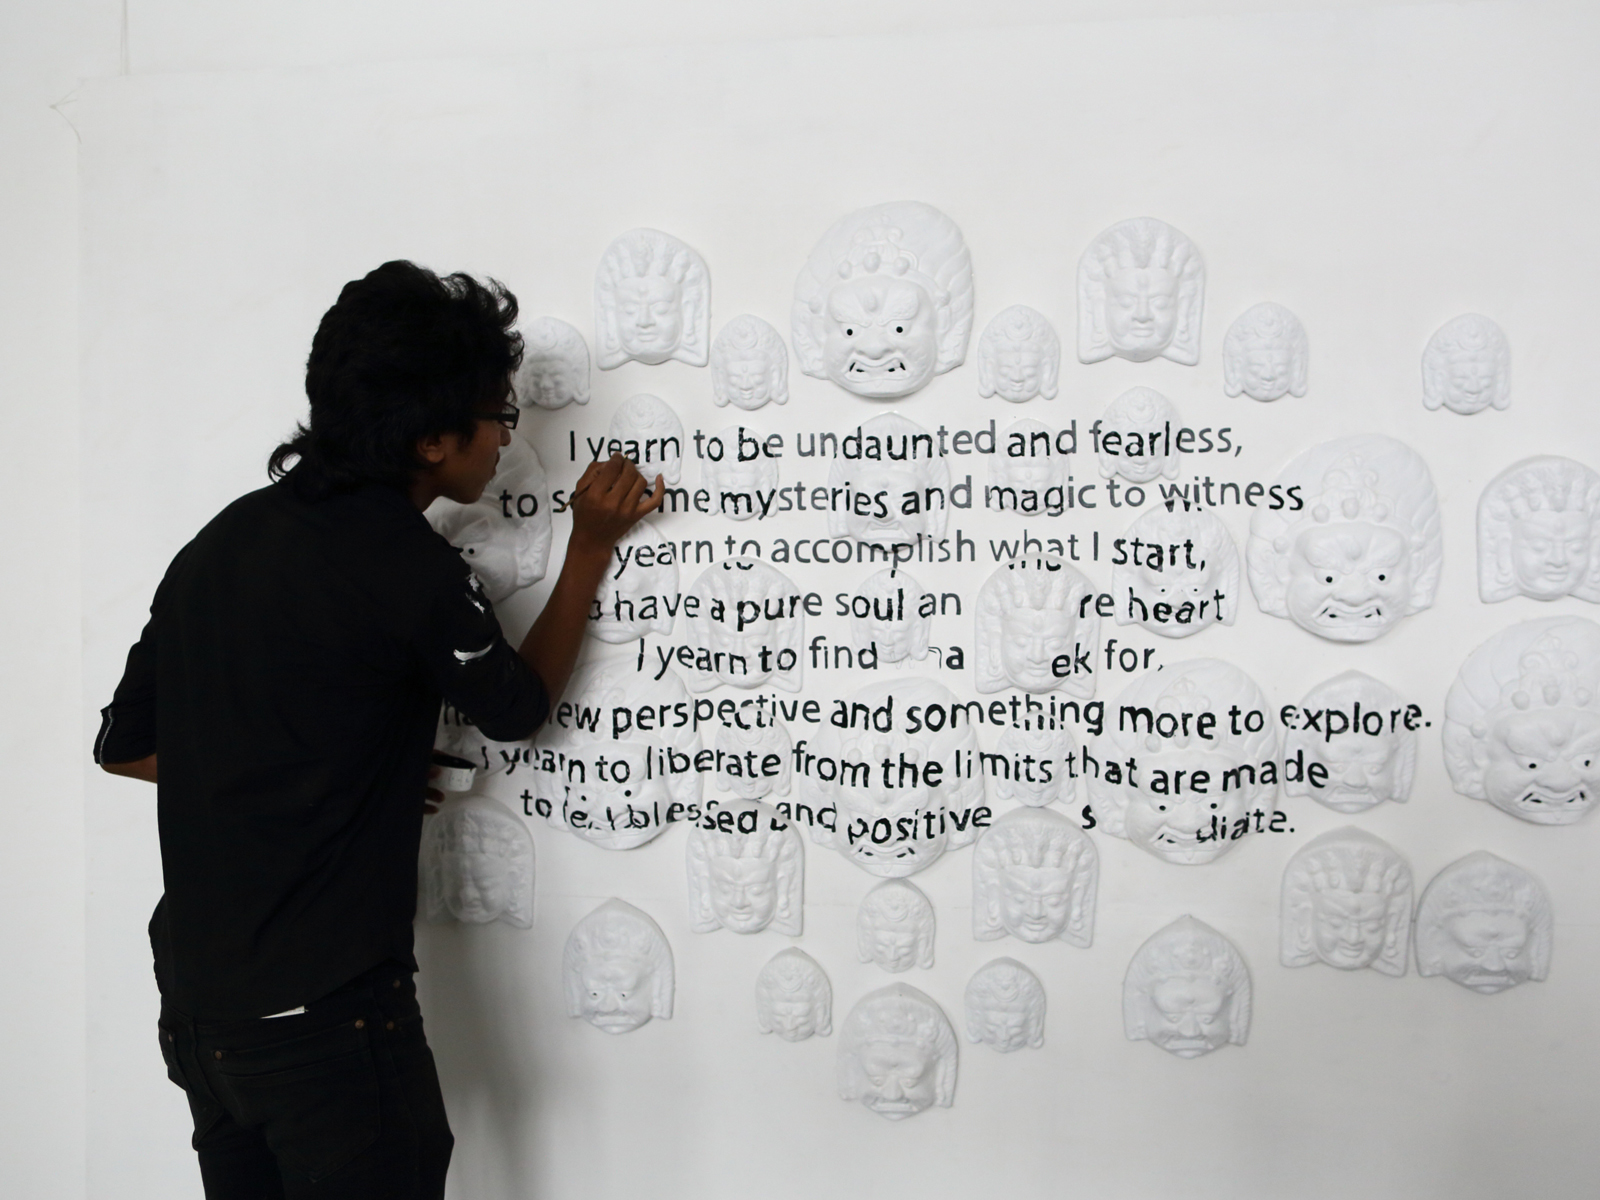 I yearn to be undaunted and fearless,
to me mysteries and magic to witness
yearn to accomplish what I start,
have a pure soul an re heart
I yearn to find a ek for,
ew perspective and something more to explore.
I yearn to liberate from the limits that are made
to blessed and positive s diate.